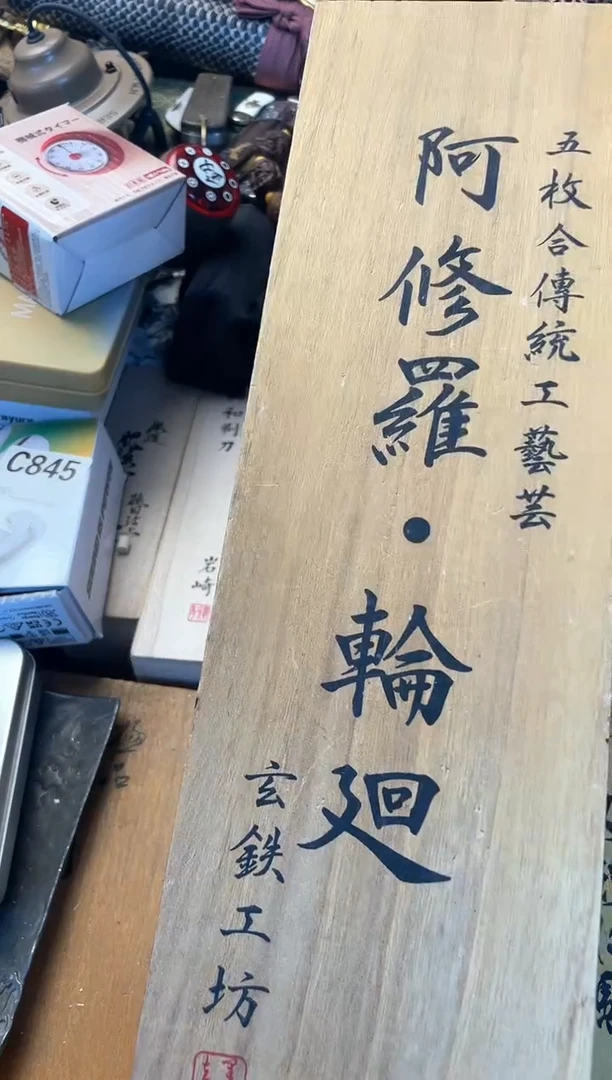 五枚合傳統工藝芸
阿修羅・輪廻
玄鉄工坊
機械式タイマー
C845
和剃刀
岩崎